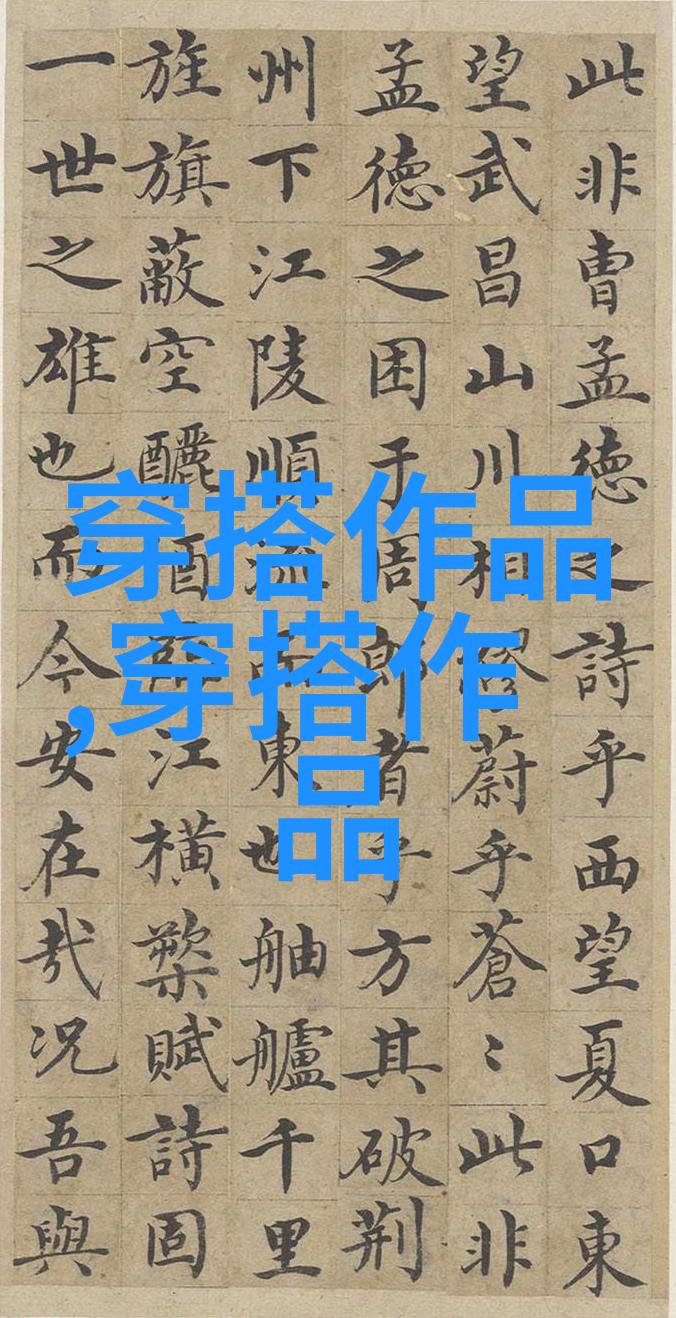 此非曹孟德之詩乎西望夏口東
望武昌山川相繆蔚乎蒼〻此非
孟德之困于周郎者乎方其破荆
州下江陵順流而東也舳艫千里
旌旗蔽空釃酒臨江横槊賦詩固
一世之雄也而今安在哉况吾與
穿搭作品
,穿搭作
品